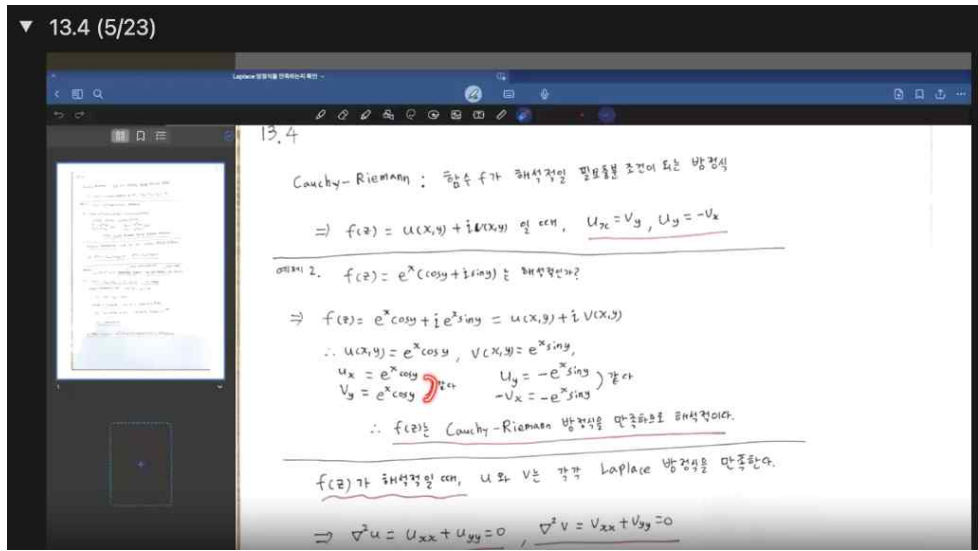 ▼ 13.4 (5/23)
Laplace 방정식을 만족하는지 확인
13.4
Cauchy-Riemann : 함수 f가 해석적일 필요충분 조건이 되는 방정식
⇒ f(z) = u(x,y) + iv(x,y) 일 때, Ux = Vy , Uy = -Vx
예제 2. f(z) = e^x(cosy + i siny)는 해석적인가?
⇒ f(z) = e^x cosy + i e^x siny = u(x,y) + i v(x,y)
∴ u(x,y) = e^x cosy , v(x,y) = e^x siny,
Ux = e^x cosy Uy = -e^x siny
Vy = e^x cosy ) 같다 -Vx = -e^x siny ) 같다
∴ f(z)는 Cauchy-Riemann 방정식을 만족하므로 해석적이다.
f(z)가 해석적일 때, u와 v는 각각 Laplace 방정식을 만족한다.
⇒ ∇²u = Uxx + Uyy = 0 , ∇²v = Vxx + Vyy = 0
1